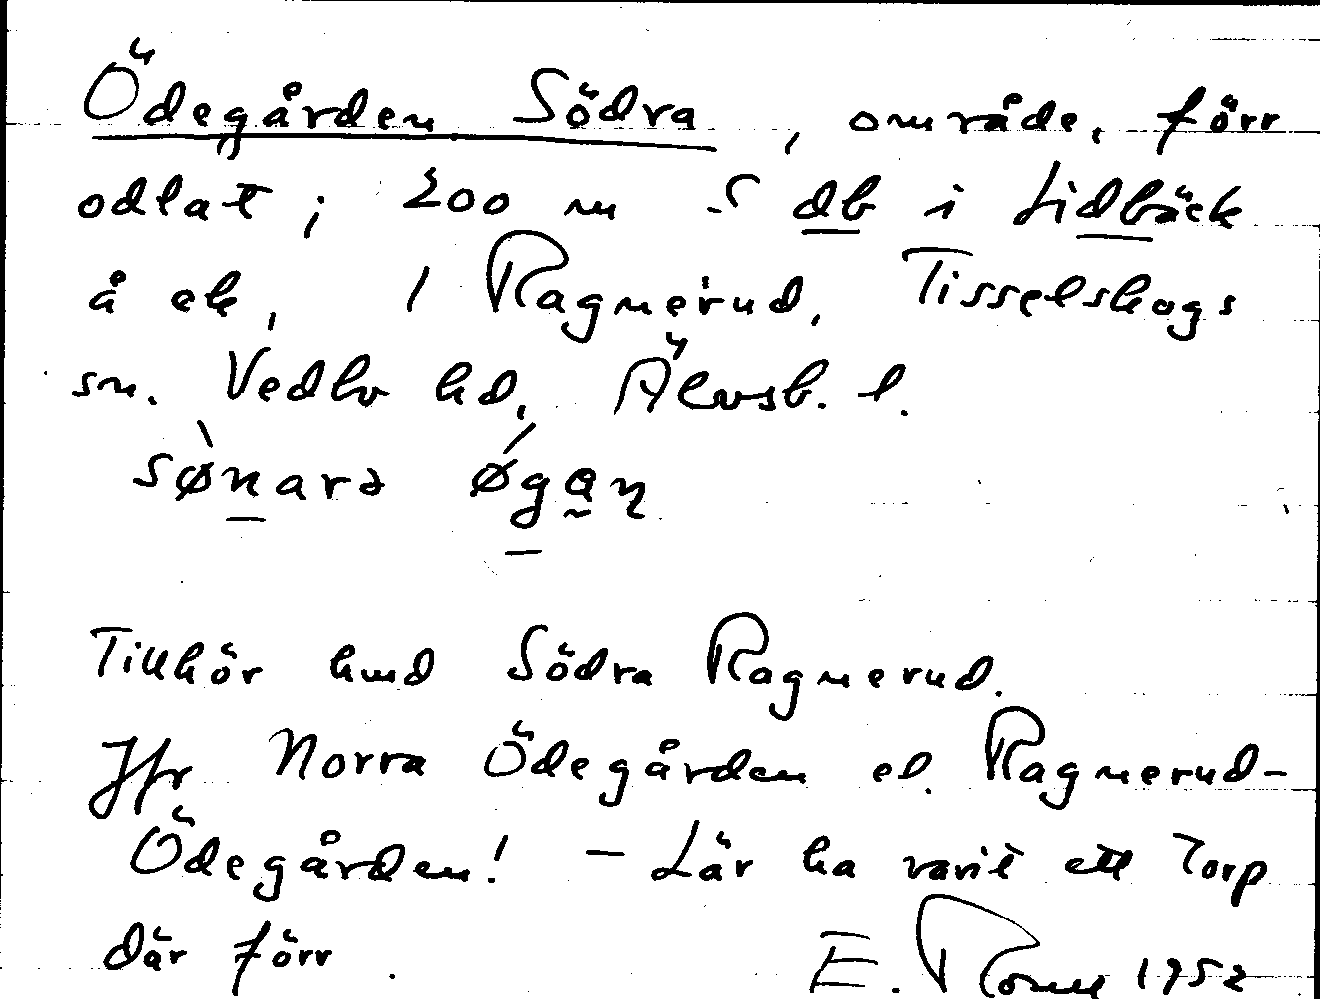 Ödegården Södra, område, förr
odlat; 200 m S db i Lidbäck
å ek, 1 Ragnerud, Tisselskogs
sn. Vedbo hd, Älvsb. l.
sø̀narə øgan
Tillhör hmd Södra Ragnerud.
Jfr Norra Ödegården el. Ragnerud-
Ödegården! – Lär ha varit ett Torp
där förr.
E. 1952